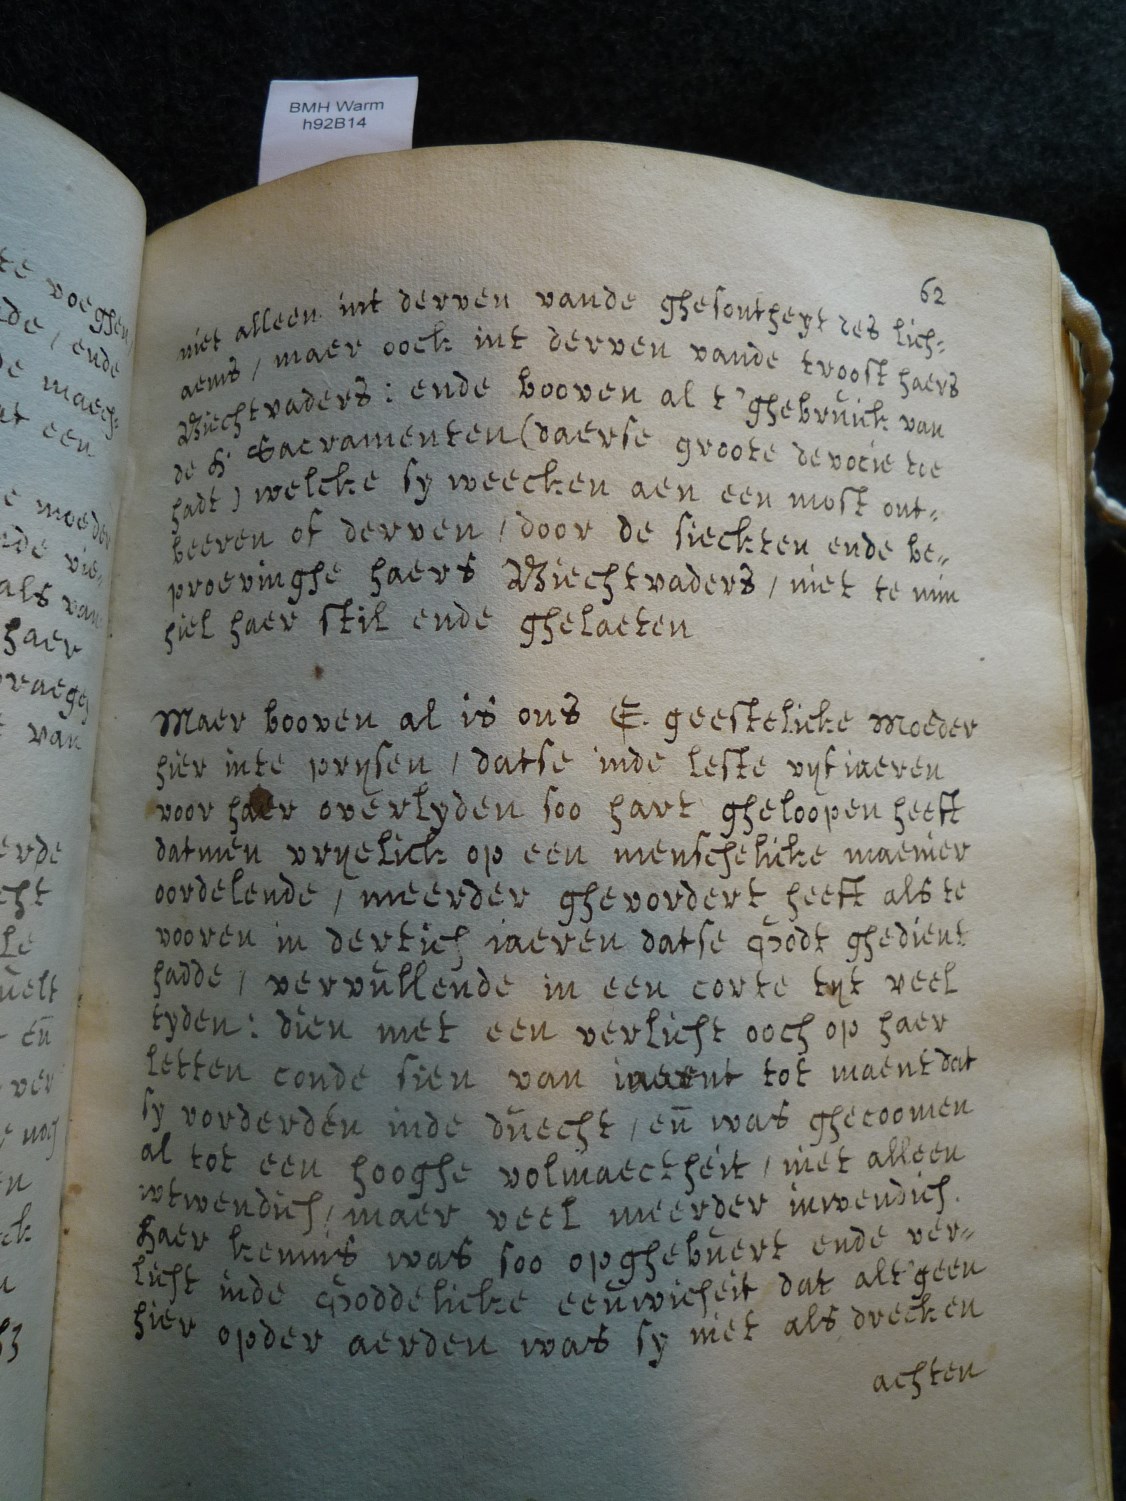 BMH Warm
h92B14
te voeghen
ende
maech-
at een
moeder
ende vie-
als van
haer
van
erde
cht
le
vuelt
eñ
ver
62
niet alleen int derven vande ghesontheyt des lich=
aems / maer oock int derven vande troost haers
Biechtvaders : ende booven al t'ghebruick van
de H. Sacramenten (daerse groote devotie toe
hadt) welcke sy weecken aen een most ont=
beeren of derven / door de sieckten ende be=
proevinghe haers Biechtvaders / niet te min
hiel haer stil ende ghelaeten
Maer booven al is ons E. geestelicke Moeder
hier inte prijsen / datse inde leste vijf iaeren
voor haer overlyden soo hart gheloopen heeft
datmen vrijelick op een menschelicke manier
oordelende / meerder ghevordert heeft als te
vooren in dertich iaeren datse Godt ghedient
hadde / vervullende in een corte tijt veel
tyden : dien met een verlicht ooch op haer
letten conde sien van maent tot maent dat
sy vorderden inde duecht / eñ was ghecoomen
al tot een hooghe volmaectheit / niet alleen
wtwendich / maer veel meerder inwendich.
Haer kennis was soo opghebuert ende ver=
licht inde Goddelicke eeuwicheit dat alt'geen
hier opder aerden was sy niet als drecken
achten